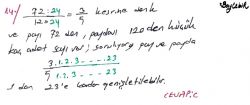 72:24 / 120:24 = 3/5 kesrine denk
ve payı 72 den, paydası 120 den küçük
kaç adet sayı var; soruluyor pay ve payda
3.1.2.3----23
5 1.2.3----23
1 den 23'e kadar genişletilebilir.
CEVAP:C